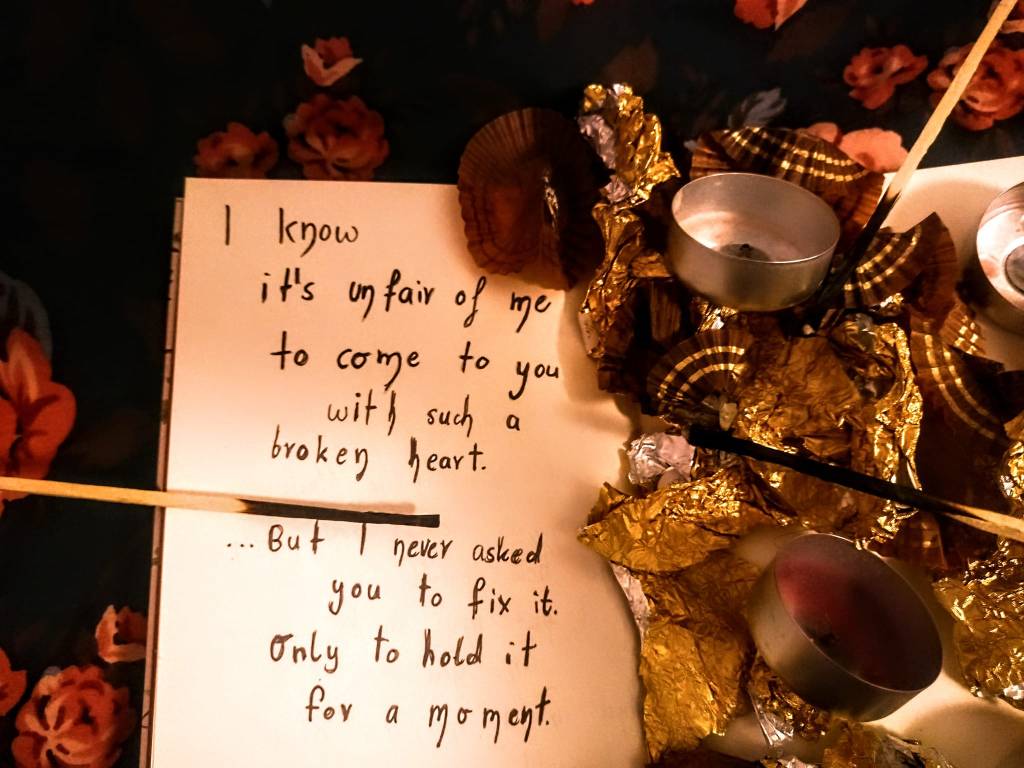 I know
it's unfair of me
to come to you
with such a
broken heart.
...But I never asked
you to fix it.
Only to hold it
for a moment.